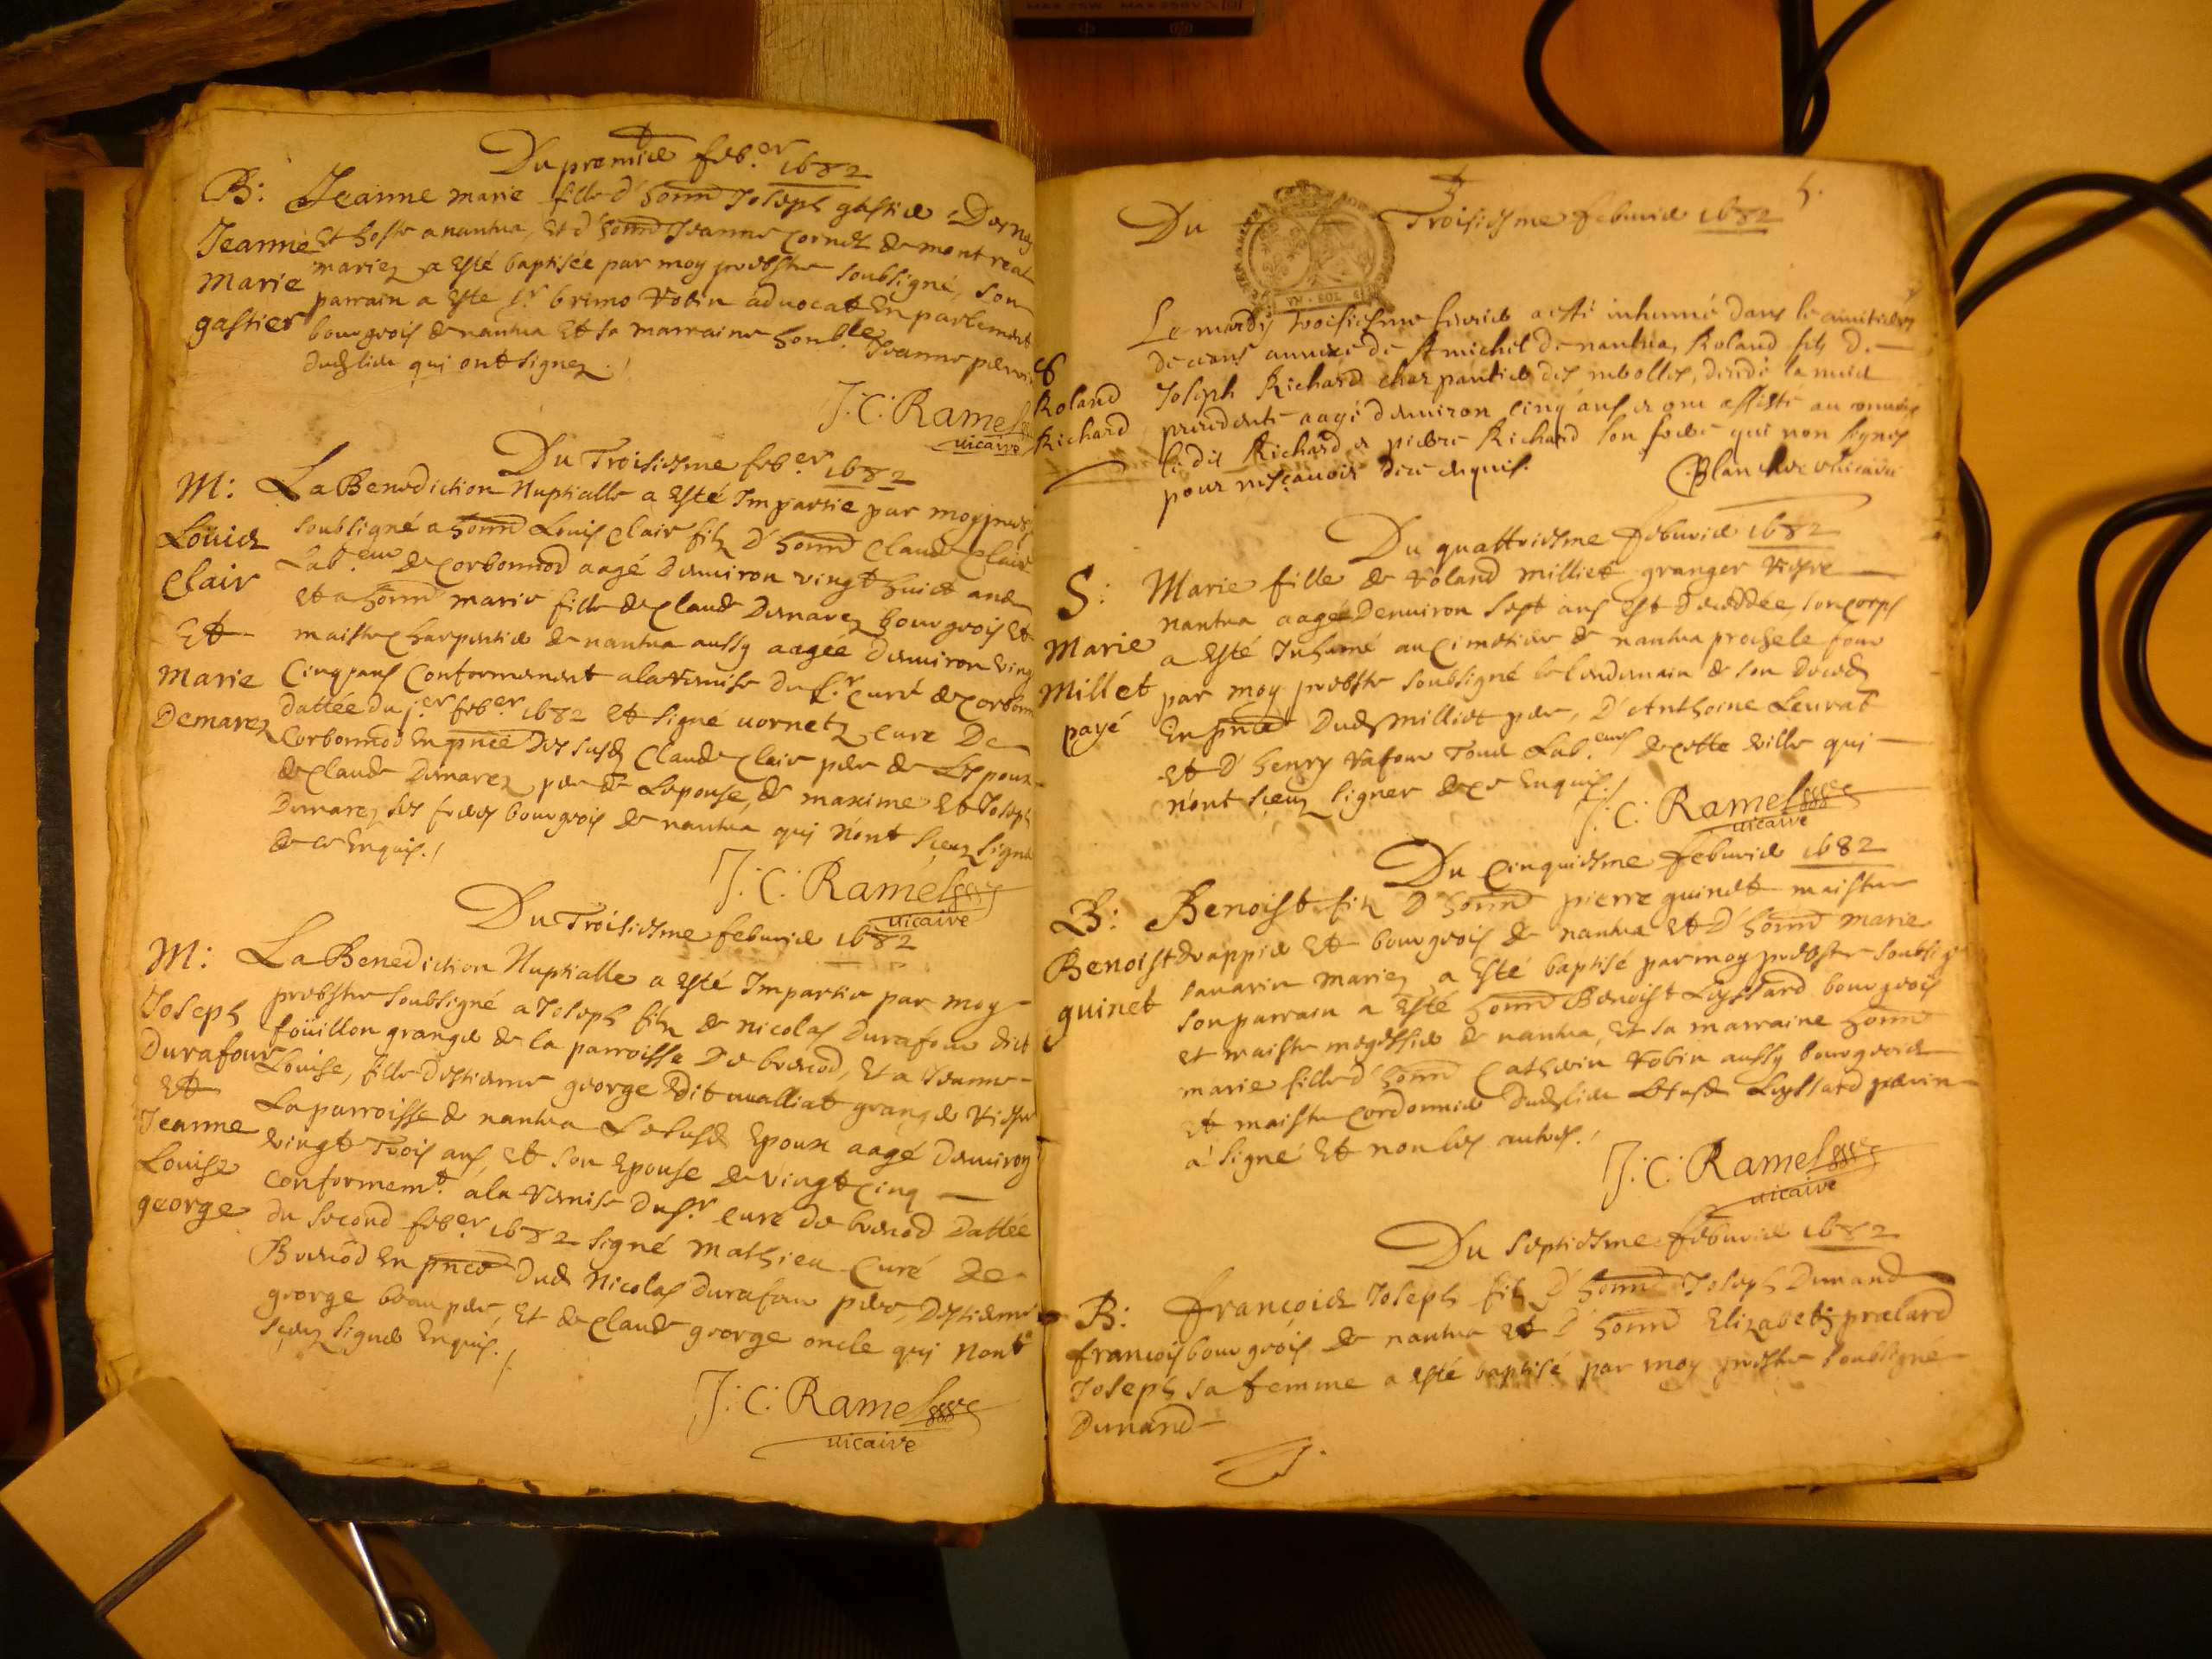 Du premier feb.er 1682
B: Jeanne marie fille d' honnd Joseph gastier
Jeanne Et hoste a nantua, Et d' honnd Jeanne Cornet de montreal
Marie mariez a Esté baptisée par moy prebstre soubsigné, son
gastier parrain a Este Sr brimo Robin advocat En parlement
bourgeois de nantua Et sa marraine honble Jeanne
dudt lieu qui ont signez./
J: C: Ramel
vicaire
Du Troisiesme feb.er 1682
M: La Benediction Nuptialle a Esté Impartie par moy
Loüis soubsigné a honnd Louis Clair filz d' honnd Claude Clair
Clair Lab.eur de Corbonnod aagé denviron vingt huict ans
Et a honnd marie fille de Claude Demarez bourgeois Et
Et maistre Charpentier de nantua aussy aagée denviron vingt
Marie Cinq ans Conformement a la Remise du Sr. Curé de
Demarez dattée du j.er feb.er 1682 Et signé vornetz Cure De
Corbonnod En pnce des susd Claude Clair pere de Lespoux
de Claude Demarez pere de Lepouse, de maxime Et Joseph
Demarez ses freres bourgeois de nantua qui n'ont sçeuz signer
de ce Enquis./
J: C: Ramel
vicaire
Du Troisiesme febvrier 1682
M: La Benediction Nuptialle a Esté Impartie par moy
Joseph prebstre soubsigné a Joseph filz de nicolas Durafour dict
Durafour foüillon granger de la parroisse De brenod, Et a Jeanne
Et Louise, fille d'estienne george dit granger Riesre
Jeanne La parroisse de nantua Le susd Epoux aagé denviron
Louise vingt Trois ans, Et son Epouse de vingt Cinq
george Conformemt. a la Remise du Sr curé de brenod dattée
du second feb.er 1682 signé mathieu Curé de
Brenod En pnce dud Nicolas durafour pere, d'estienne
george beau pere, Et de Claude george oncle qui nont
sçeuz signer Enquis./
J: C: Ramel
vicaire
5.
Du Troisiesme febvrier 1682
Le mardy troisiesme fevrier a esté inhumé dans le
de ceans annexe de St michel de nantua, Roland filz de
8 Joseph Richard charpantier des, la nuit
Roland precedente aagé denviron cinq ans et ont assisté au
Richard le dit Richard et pierre Richard son frere qui non signés
pour nesçavoir de ce enquis.
vicaire
Du quattriesme febvrier 1682
S: Marie fille de Roland milliet granger Riesre
Marie nantua aagée denviron sept ans Est décédée, son corps
Millet a Esté Inhumé au Cimetiere de nantua proche le four
payé par moy prebstre soubsigné le lendemain de son deced
En pnce dud milliet pere, D'Anthoine Leurat
Et d' henry Rafour Tous Lab.eurs de cette ville qui
n'ont sçeuz signer de ce Enquis./
J: C: Ramel
vicaire
Du Cinquiesme febvrier 1682
B: Benoist filz d' honnd pierre guinet maistre
Benoist drappier Et bourgeois de nantua Et d' honnd marie
guinet savarin mariez a Esté baptisé par moy prebstre soubsigé
son parrain a Esté honnd Benoist Luyssard bourgeois
et maistre megissier de nantua, Et sa marraine honnd
marie fille d' honnd Catherin Robin aussy bourgeois
Et maistre cordonnier dudt lieu Lesd Luyssard parrin
a signé Et non les autres./
J: C: Ramel
vicaire
Du Septiesme febvrier 1682
B: françois Joseph filz d' honnd Joseph Dunand
francois bourgeois de nantua Et d' honnd Elizabeth prelard
Joseph sa femme a esté baptisé par moy prebstre soubsigné
Dunand